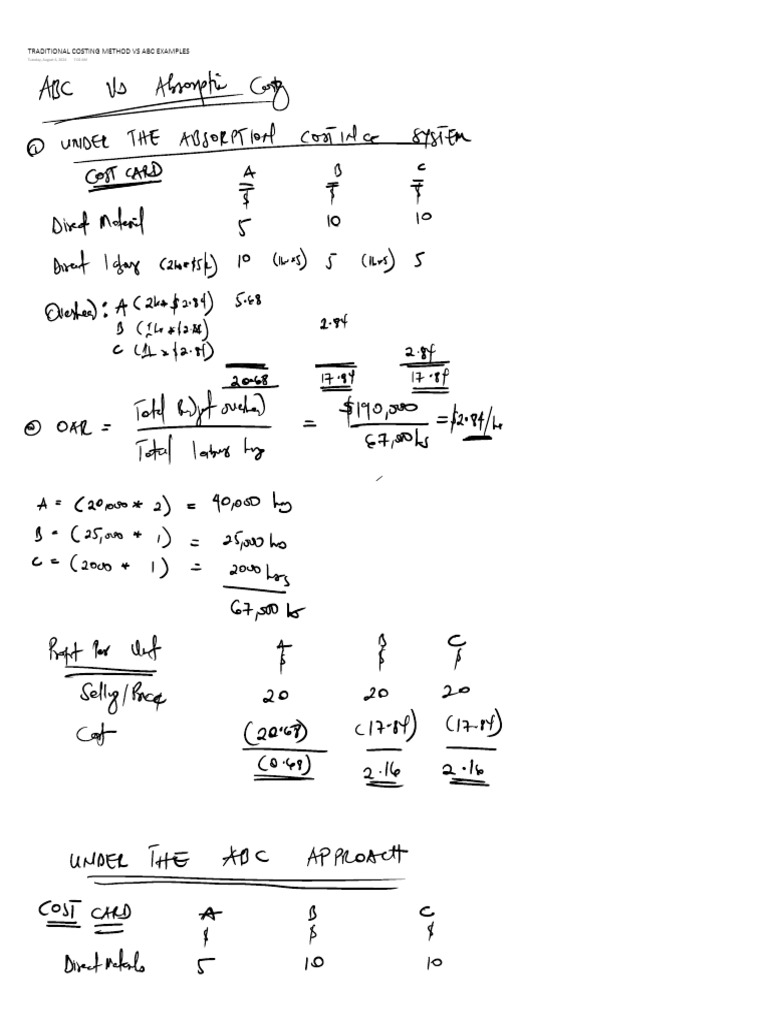 TRADITIONAL COSTING METHOD VS ABC EXAMPLES
Tuesday, August 6, 2024
ABC Vs Absorptn Costg
① UNDER THE ABSORPTION COSTING SYSTEM
COST CARD A B C
$ $ $
Direct Material 5 10 10
Direct labour (2hr*$5h) 10 (1hr*5) 5 (1hr*5) 5
Overhead: A (2hr*$2.84) 5.68
B (1hr*$2.84) 2.84
C (1h*$2.84) 2.84
20.68 17.84 17.84
② OAR = Total Budget overhead = $190,000 = $2.84/hr
Total labour hrs 67,000hrs
A = (20,000 * 2) = 40,000 hrs
B = (25,000 * 1) = 25,000 hrs
C = (2000 * 1) = 2000 hrs
67,000 hrs
Profit Per Unit A B C
$ $ $
Selling/Price 20 20 20
Cost (20.68) (17.84) (17.84)
(0.68) 2.16 2.16
UNDER THE ABC APPROACH
COST CARD A B C
$ $ $
Direct Materials 5 10 10